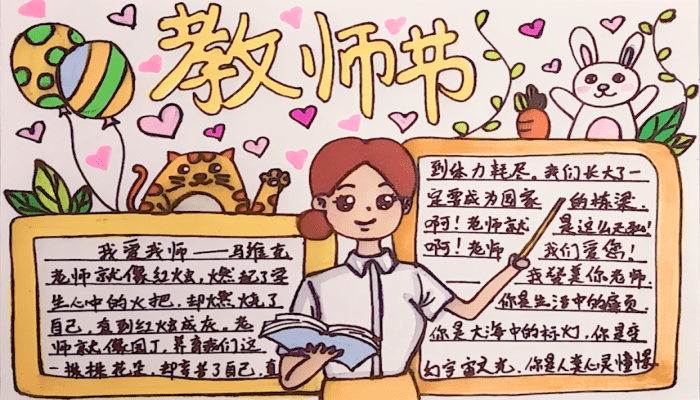 教师节
我爱我师——马维克
老师就像红烛，燃起了学
生心中的火把，却燃烧了
自己，直到红烛成灰。老
师就像园丁，养育我们这
一株株花朵，却辛苦了自己，直
到体力耗尽。我们长大了一
定要成为国家的栋梁.
啊！老师就是这么无私！
啊！老师我们爱您！
我赞美你老师.
你是生活中的扉页
你是大海中的标灯，你是变
幻宇宙之光，你是人类心灵憧憬